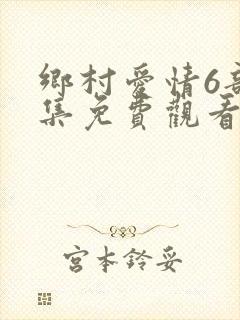 鄉村愛情6
集免費觀看
宮本鈴妥